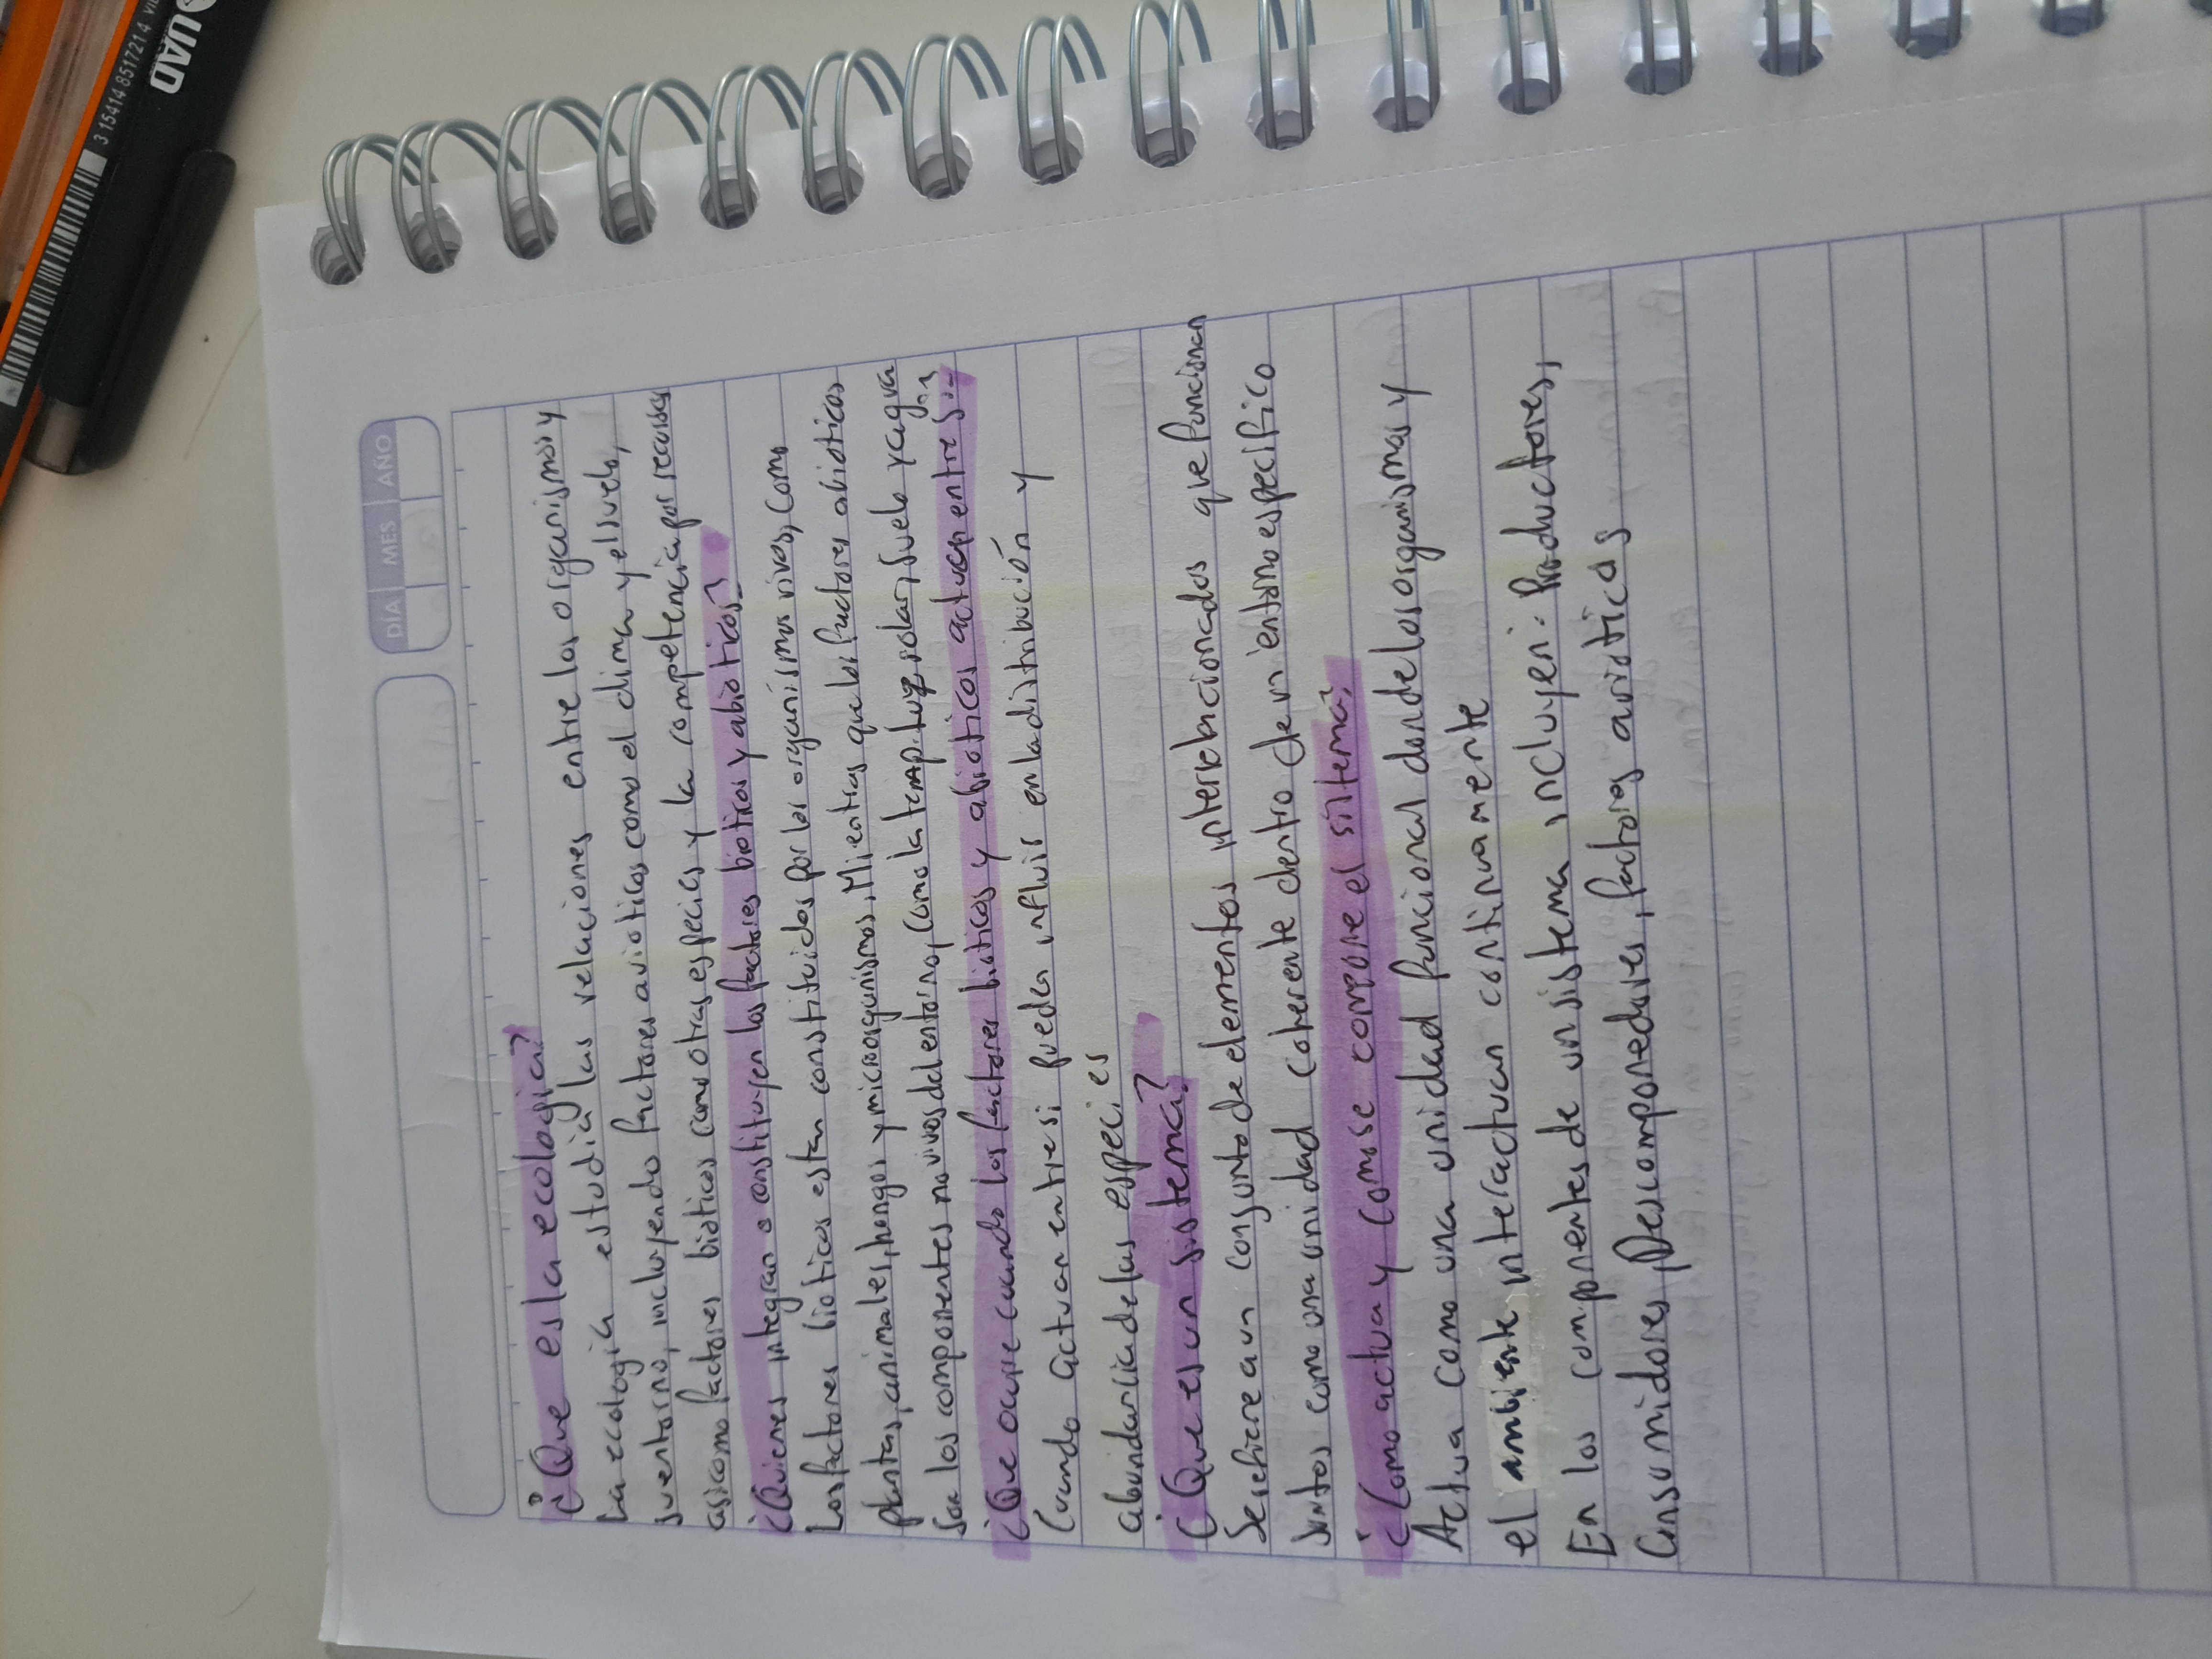 3 15414 8517214
QUAD
DÍA MES AÑO
¿Que es la ecologia?
La ecología estudia las relaciones entre los organismos y
su entorno, incluyendo factores avioticos como el clima y el suelo,
asi como factores bioticos como otras especies y la competencia por recursos
¿Quienes integran o constituyen los factores bioticos y abioticos?
Los factores bioticos estan constituidos por los organísmos vivos, como
plantas, animales, hongos y microorganismos, Mientras que los factores abioticos
son los componentes no vivos del entorno, como la temp. luz solar, suelo y agua
¿Que ocurre cuando los factores bioticos y abioticos actuan entre si?
Cuando actuan entre si pueden influir en la distribución y
abundancia de las especies
¿Que es un sistema?
Se refiere a un conjunto de elementos interrelacionados que funcionan
juntos como una unidad coherente dentro de un entorno especifico
¿Como actua y como se compone el sistema?
Actua como una unidad funcional donde los organismos y
el ambiente interactuan continuamente
En los componentes de un sistema incluyen: Productores,
Consumidores, Descomponedores, factores avioticos